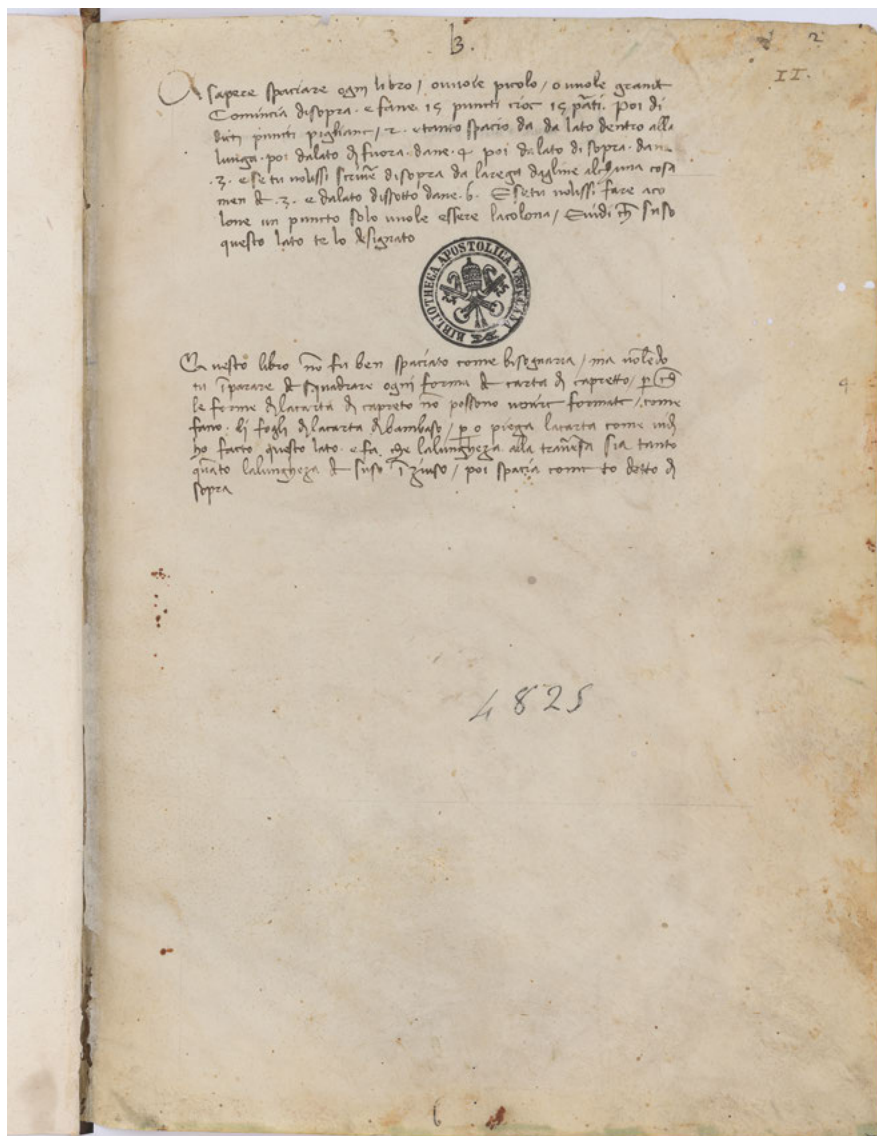 3.
2
II.
A sapere spaciare ogni libro / o vuole picolo / o vuole grande
Comincia disopra · e fane · 15 puncti cioe 15 p̄ati. Poi di
dicti puncti pigliane / 2 · e tanto spacio da da lato dentro alla
lunga · poi dalato di fuora · dane · 4 poi dalato di sopra · dane
· 3 · e se tu volissi scrivē disopra da larega dagline alchuna cosa
men de · 3 · e dalato dissotto dane · 6 · E se tu volissi fare aco
lone un puncto solo vuole essere lacolona / E vidi ch̄ suso
questo lato te lo designato
BIBLIOTHECA APOSTOLICA VATICANA
Questo libro nō fu ben spaciato come bisognaria / ma volēdo
tu īparare de squadrare ogni forma de carta di capretto / p ch̄
le forme di lacarta di capreto nō possono venire formate / come
fano · li fogli di lacarta di bambaso / p o piega lacarta come vidi
ho facto questo lato · e fa · che lalungheza alla travēsa sia tanto
quāto lalungheza de suso ī giuso / poi spacia come to detto di
sopra
4
4825